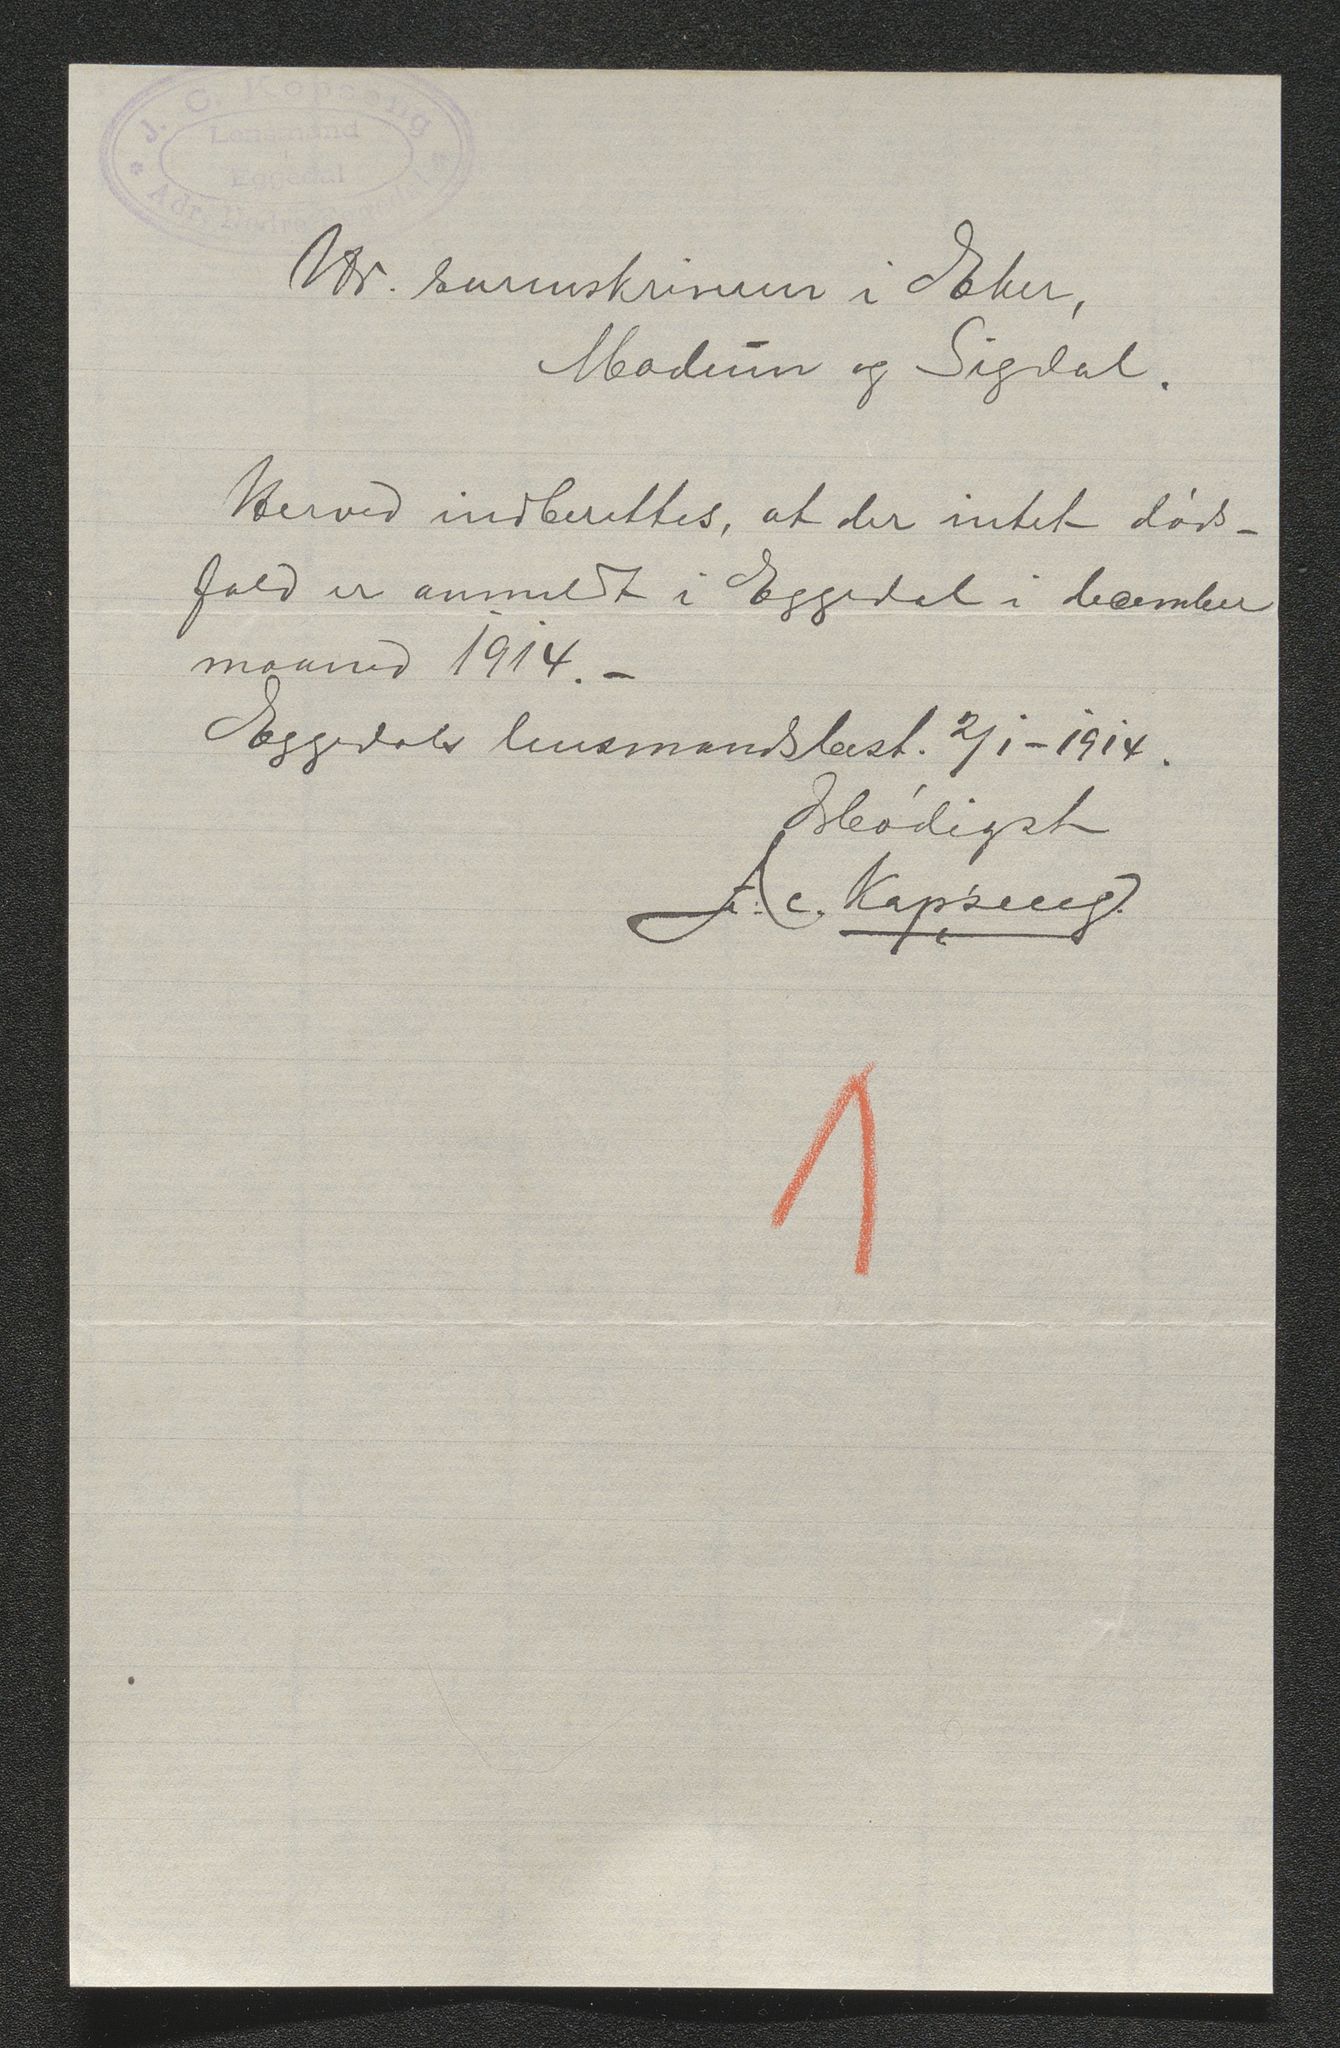 J. C. Kopseng
Lensmand
i
Eggedal
Adr. Nedre Eggedal
Hr. sorenskriveren i Eker,
Modum og Sigdal.
Herved indberettes, at der intet døds-
fald er anmeldt i Eggedal i december
maaned 1914. -
Eggedals lensmandsbest. 2/1 - 1914.
Ærbødigst
J. C. Kopseng.
1